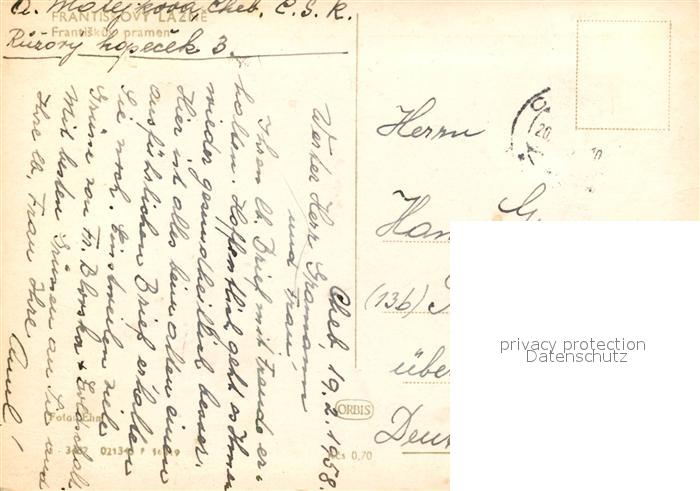 A. Matejkova Cheb, Č.S.R.
FRANTIŠKOVY LÁZNĚ
Františkův pramen
Růžový kopeček 3.
Cheb, 19.2.1958.
Werter Herr Gramann
und Frau!
Ihren lb. Brief mit Freude er-
halten. Hoffentlich geht es Ihnen
wieder gesundheitlich besser.
Hier ist alles beim alten einen
ausführlichen Brief erhalten
Sie noch. Einstweilen viele
Grüsse von Fr. Blonska +
Mit besten Grüssen an Sie und
Ihre lb. Frau Ihre
Herrn
(13b)
über
Foto:
ORBIS
Kčs 0,70
privacy protection
Datenschutz